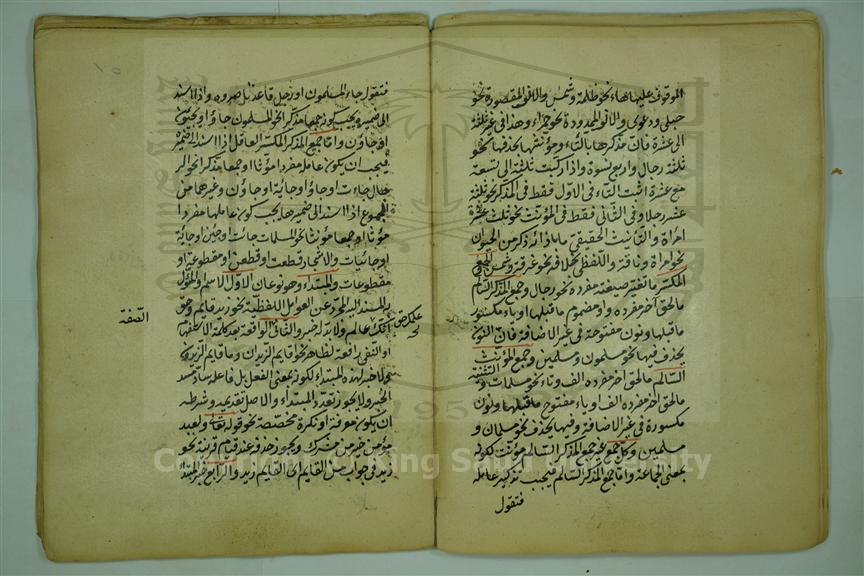 الموقوف عليها هاء نحو ظلمة وشمس والالف المقصورة نحو
حبلى ودعوى والالف الممدودة نحو حمراء وهذا في غير ثلثة
الى عشرة فان مذكرها بالتاء ومؤنثها بحذفها نحو
ثلثة رجال واربع نسوة واذا ركبت ثلثة الى تسعة
مع عشرة اثبت التاء في الاول فقط في المذكر نحو ثلثة
عشر رجلا وفي الثاني فقط في المؤنث نحو ثلث عشرة
امرأة والتأنيث الحقيقي ما بازائه ذكر من الحيوان
نحو امرأة وناقة واللفظي بخلافه نحو غرفة وشمس والجمع
المكسر ما تغير صيغة مفرده نحو رجال وجمع المذكر السالم
ما لحق آخر مفرده واو مضموم ما قبلها او ياء مكسور
ما قبلها ونون مفتوحة في غير الاضافة فان النون
يحذف فيها نحو مسلمون ومسلمين وجمع المؤنث
السالم ما لحق آخر مفرده الف وتاء نحو مسلمات والتثنية
ما لحق آخر مفرده الف او ياء مفتوح ما قبلها ونون
مكسورة في غير الاضافة وفيها يحذف نحو مسلمان و
مسلمين وكل جمع غير جمع المذكر السالم مؤنث لكونه
بمعنى الجماعة واما جمع المذكر السالم يجب تذكير عامله
فتقول
فتقول جاء المسلمون او رجل قاعد ناصروه واذا اسند
الى ضميره يجب كونه جمعا مذكرا نحو المسلمون جاؤا او يجيئون
او جاؤن واما جمع المذكر المكسر العاقل اذا اسند الى ضميره
فيجب ان يكون عامله مفردا مؤنثا او جمعا مذكرا نحو الر
جال جاءت او جاؤا او جائية او جاؤن وغيرها من
الجموع اذا اسند الى ضميرها يجب كون عاملها مفردا
مؤنثا او جمعا مؤنثا نحو المسلمات جائت او جئن او جائية
او جائيات والاشجار قطعت او قطعن او مقطوعة او
مقطوعات والمبتداء وهو نوعان الاول الاسم او المؤول
به المسند اليه المجرد عن العوامل اللفظية نحو زيد قايم وحق
انك عالم ولا بد له خبر والثاني الواقعة بعد كلمة الاستفهام
او النفي رافعة لظاهر نحو اقايم الزيدان وما قايم الزيدون
ولا خبر لهذه المبتداء لكونه بمعنى الفعل بل فاعله ساد مسد
الخبر ولا يجوز تعدد المبتداء والاصل تقديمه وشرطه
ان يكون معرفة او نكرة مخصصة نحو قوله تعالى ولعبد
مؤمن خير من مشرك ويجوز حذفه عند قيام قرينة نحو
زيد في جواب من القايم اى القايم زيد والرابع خبر المبتدا
الصفة
King Saud University